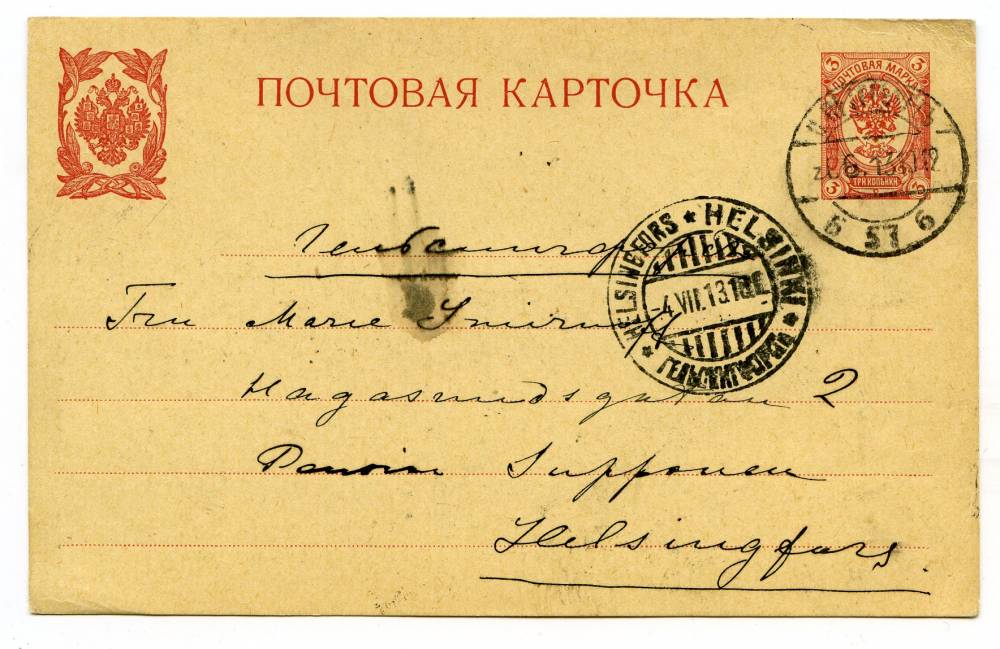 ПОЧТОВАЯ КАРТОЧКА
3 3
ПОЧТОВАЯ МАРКА
ТРИ КОПЬИКИ
3 3
6 57 6
HELSINGFORS * HELSINKI * ГЕЛЬСИНГФОРСЪ *
-4.VII.13
Fru Marie
Hagasundsgatan 2
Pension Supponen
Helsingfors.